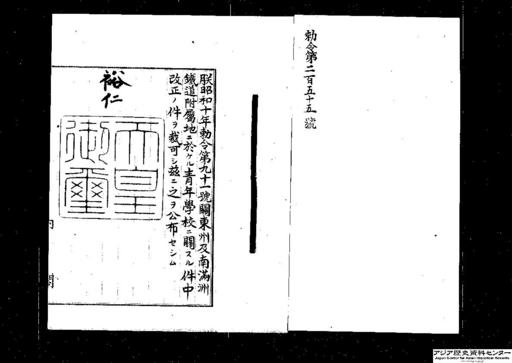 勅令第二百五十五號
朕昭和十年勅令第九十一號關東州及南滿洲
鐵道附屬地ニ於ケル青年學校ニ關スル件中
改正ノ件ヲ裁可シ茲ニ之ヲ公布セシム
裕仁
天皇
御璽
内閣
アジア歴史資料センター
Japan Center for Asian Historical Records